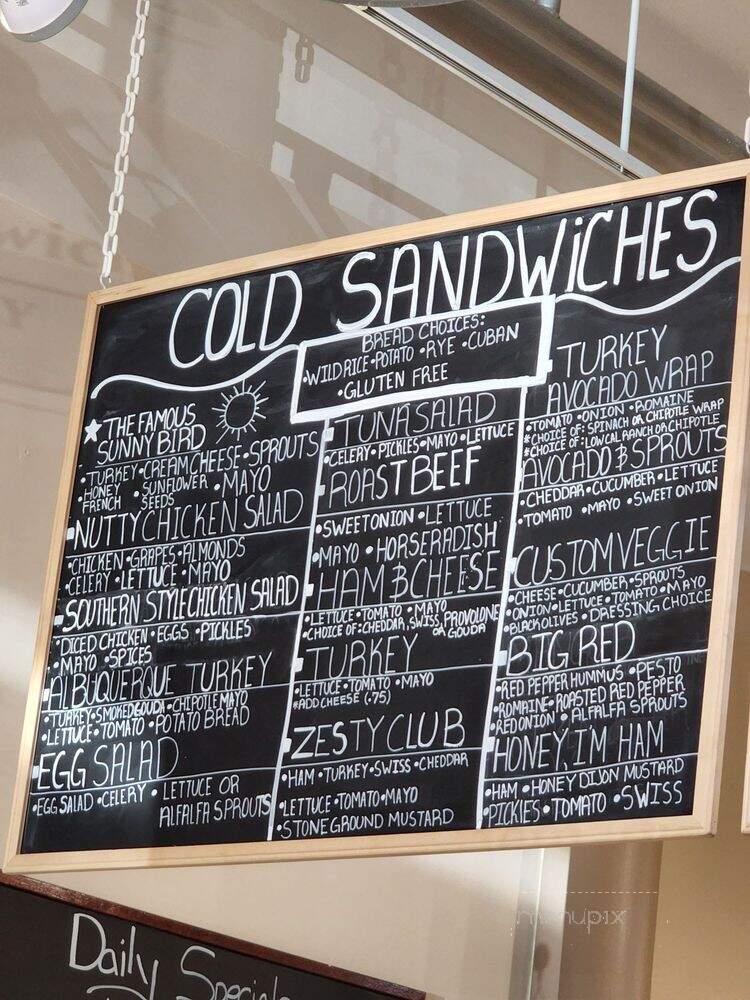 COLD SANDWiCHES
BREAD CHOICES:
•WILD RICE •POTATO •RYE •CUBAN
•GLUTEN FREE
★ THE FAMOUS
SUNNY BIRD
•TURKEY •CREAM CHEESE •SPROUTS
•HONEY FRENCH •SUNFLOWER SEEDS •MAYO
NUTTY CHICKEN SALAD
•CHICKEN •GRAPES •ALMONDS
•CELERY •LETTUCE •MAYO
SOUTHERN STYLE CHICKEN SALAD
•DICED CHICKEN •EGGS •PICKLES
•MAYO •SPICES
ALBUQUERQUE TURKEY
•TURKEY •SMOKED GOUDA •CHIPOTLE MAYO
•LETTUCE •TOMATO •POTATO BREAD
EGG SALAD
•EGG SALAD •CELERY • LETTUCE OR
ALFALFA SPROUTS
TUNA SALAD
•CELERY •PICKLES •MAYO •LETTUCE
ROAST BEEF
•SWEET ONION •LETTUCE
•MAYO •HORSERADISH
HAM & CHEESE
•LETTUCE •TOMATO •MAYO
•CHOICE OF: CHEDDAR, SWISS, PROVOLONE
OR GOUDA
TURKEY
•LETTUCE •TOMATO •MAYO
*ADD CHEESE (.75)
ZESTY CLUB
•HAM •TURKEY •SWISS •CHEDDAR
•LETTUCE •TOMATO •MAYO
•STONE GROUND MUSTARD
TURKEY
AVOCADO WRAP
•TOMATO •ONION •ROMAINE
*CHOICE OF: SPINACH OR CHIPOTLE WRAP
*CHOICE OF: LOW CAL RANCH OR CHIPOTLE
AVOCADO & SPROUTS
•CHEDDAR •CUCUMBER •LETTUCE
•TOMATO •MAYO •SWEET ONION
CUSTOM VEGGIE
•CHEESE •CUCUMBER •SPROUTS
•ONION •LETTUCE •TOMATO •MAYO
•BLACK OLIVES •DRESSING CHOICE
BIG RED
•RED PEPPER HUMMUS •PESTO
•ROMAINE •ROASTED RED PEPPER
•RED ONION •ALFALFA SPROUTS
HONEY, I'M HAM
•HAM •HONEY DIJON MUSTARD
•PICKLES •TOMATO •SWISS
menupix
Daily Specials